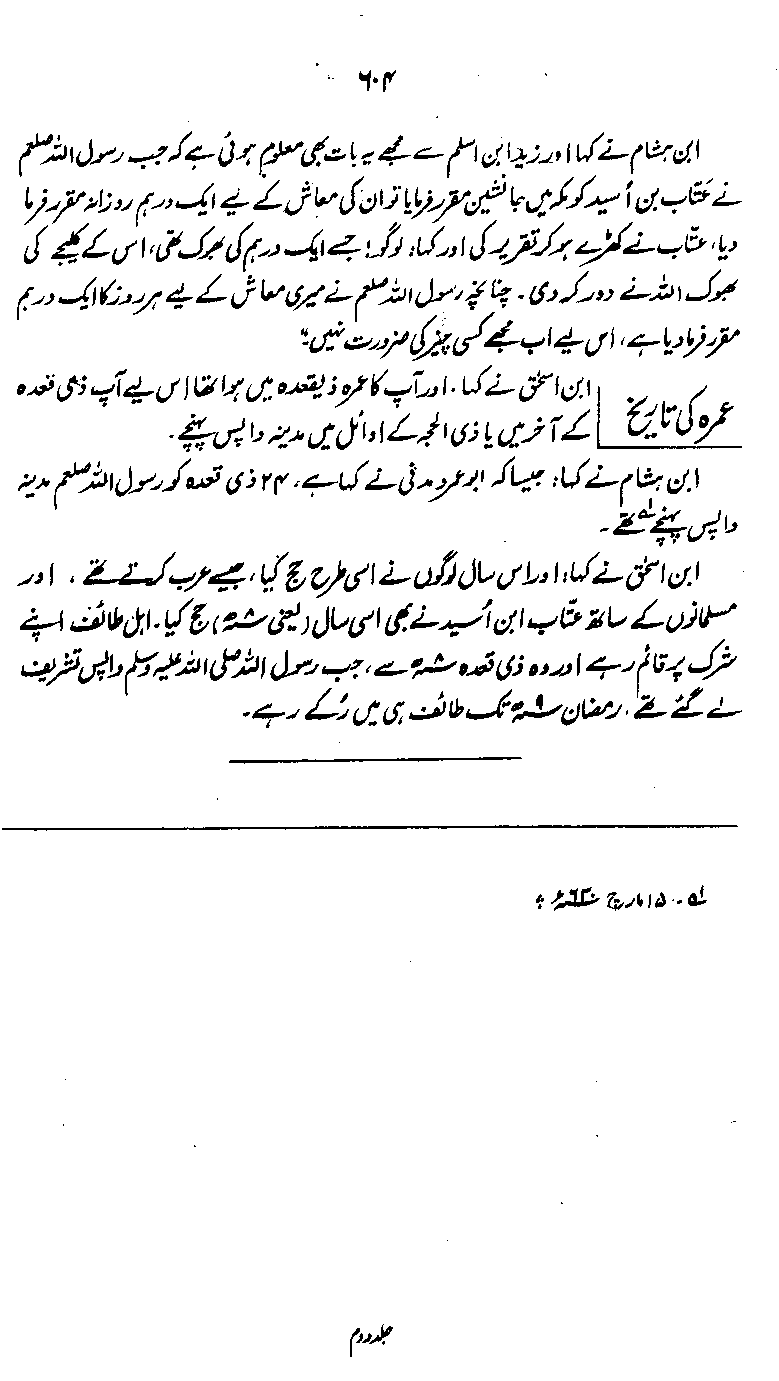 ۶۰۴
ابن ہشام نے کہا اور زید ابن اسلم سے مجھے یہ بات بھی معلوم ہوئی ہے کہ جب رسول اللہ صلعم
نے عَتّاب بن اُسید کو مکہ میں جانشین مقرر فرمایا تو ان کی معاش کے لیے ایک درہم روزانہ مقرر فرما
دیا، عتّاب نے کھڑے ہو کر تقریر کی اور کہا: لوگو! جسے ایک درہم کی بھوک تھی، اس کے کلیجے کی
بھوک اللہ نے دور کر دی۔ چنانچہ رسول اللہ صلعم نے میری معاش کے لیے ہر روز کا ایک درہم
مقرر فرما دیا ہے، اس لیے اب مجھے کسی چیز کی ضرورت نہیں۔"
عمرہ کی تاریخ
ابن اسحٰق نے کہا۔ اور آپ کا عمرہ ذیقعدہ میں ہوا تھا اس لیے آپ ذی قعدہ
کے آخر میں یا ذی الحجہ کے اوائل میں مدینہ واپس پہنچے۔
ابن ہشام نے کہا: جیسا کہ ابو عمرو مدنی نے کہا ہے، ۲۴ ذی قعدہ کو رسول اللہ صلعم مدینہ
واپس پہنچے لہ تھے۔
ابن اسحٰق نے کہا: اور اس سال لوگوں نے اسی طرح حج کیا، جیسے عرب کرتے تھے، اور
مسلمانوں کے ساتھ عتّاب ابن اُسید نے بھی اسی سال (یعنی ۸ھ) حج کیا۔ اہل طائف اپنے
شرک پر قائم رہے اور وہ ذی قعدہ ۸ھ سے، جب رسول اللہ صلی اللہ علیہ وسلم واپس تشریف
لے گئے تھے، رمضان ۹ھ تک طائف ہی میں رُکے رہے۔
لہ۔ ۱۵ مارچ ۶۳۰ء ؛
جلد دوم